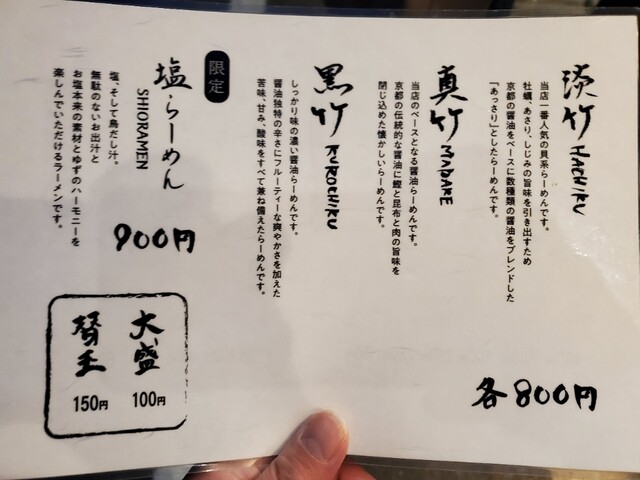 淡竹 HACHIKU
当店一番人気の貝系らーめんです。
牡蠣、あさり、しじみの旨味を引き出すため
京都の醤油をベースに数種類の醤油をブレンドした
「あっさり」としたらーめんです。
真竹 MADAKE
当店のベースとなる醤油らーめんです。
京都の伝統的な醤油に鰹と昆布と肉の旨味を
閉じ込めた懐かしいらーめんです。
黒竹 KUROCHIKU
しっかり味の濃い醤油らーめんです。
醤油独特の辛さにフルーティーな爽やかさを加えた
苦味、甘み、酸味をすべて兼ね備えたらーめんです。
各800円
限定
塩らーめん
SHIORAMEN
塩、そして鳥だし汁。
無駄のないお出汁と
お塩本来の素材とゆずのハーモニーを
楽しんでいただけるラーメンです。
900円
大盛
100円
替玉
150円